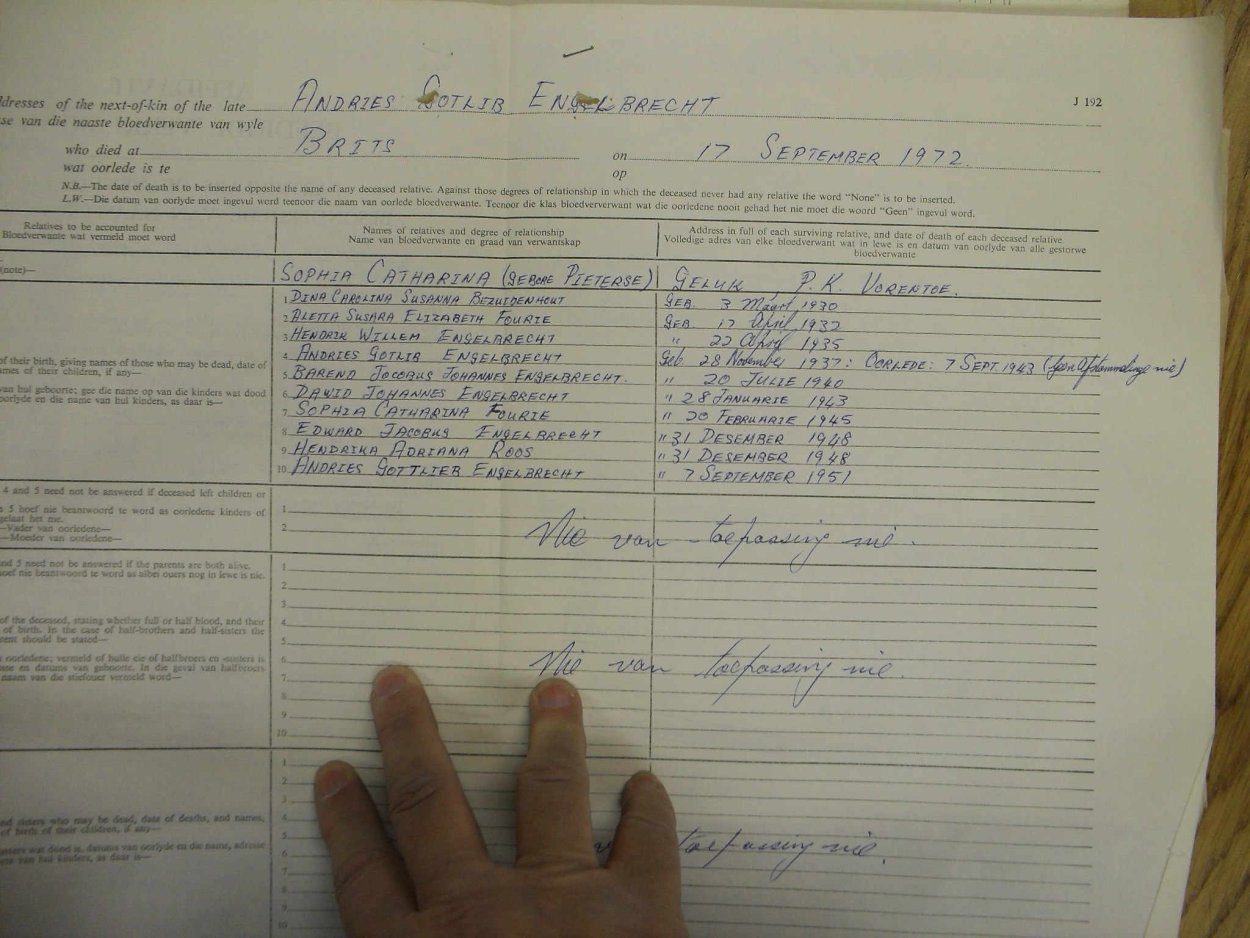 ddresses of the next-of-kin of the late ANDRIES GOTLIB ENGELBRECHT
J 192
se van die naaste bloedverwante van wyle
who died at BRITS on 17 SEPTEMBER 1972.
wat oorlede is te op
N.B.—The date of death is to be inserted opposite the name of any deceased relative. Against those degrees of relationship in which the deceased never had any relative the word "None" is to be inserted.
L.W.—Die datum van oorlyde moet ingevul word teenoor die naam van oorlede bloedverwante. Teenoor die klas bloedverwant wat die oorledene nooit gehad het nie moet die woord "Geen" ingevul word.
Relatives to be accounted for
Bloedverwante wat vermeld moet word
Names of relatives and degree of relationship
Name van bloedverwante en graad van verwantskap
Address in full of each surviving relative, and date of death of each deceased relative
Volledige adres van elke bloedverwant wat in lewe is en datum van oorlyde van alle gestorwe
bloedverwante
(note)—
SOPHIA CATHARINA (GEBORE PIETERSE) GELUK, P.K. VORENTOE.
1 DINA CAROLINA SUSANNA BEZUIDENHOUT GEB. 3 Maart 1930
2 ALETTA SUSARA ELIZABETH FOURIE GEB. 17 April 1932
3 HENDRIK WILLEM ENGELBRECHT " 22 April 1935
4 ANDRIES GOTLIB ENGELBRECHT Geb. 28 November 1937: OORLEDE: 7 SEPT. 1943 (Geen Afstammelinge nie)
5 BAREND JOCOBUS JOHANNES ENGELBRECHT. " 20 JULIE 1940
6 DAWID JOHANNES ENGELBRECHT " 28 JANUARIE 1943
7 SOPHIA CATHARINA FOURIE " 20 FEBRUARIE 1945
8 EDWARD JACOBUS ENGELBRECHT " 31 DESEMBER 1948
9 HENDRIKA ADRIANA ROOS " 31 DESEMBER 1948
10 ANDRIES GOTTLIEB ENGELBRECHT " 7 SEPTEMBER 1951
of their birth, giving names of those who may be dead, date of
ames of their children, if any—
van hul geboorte; gee die name op van die kinders wat dood
oorlyde en die name van hul kinders, as daar is—
4 and 5 need not be answered if deceased left children or
5 hoef nie beantwoord te word as oorledene kinders of
gelaat het nie.
—Vader van oorledene—
—Moeder van oorledene—
1
2
Nie van toepassing nie.
nd 5 need not be answered if the parents are both alive.
hoef nie beantwoord te word as albei ouers nog in lewe is nie.
of the deceased, stating whether full or half blood, and their
of birth. In the case of half-brothers and half-sisters the
ent should be stated—
oorledene; vermeld of hulle eie of halfbroers en -susters is
se en datums van geboorte. In die geval van halfbroers
naam van die stiefouer vermeld word—
1
2
3
4
5
6
7
8
9
10
Nie van toepassing nie.
nd sisters who may be dead, date of deaths, and names,
of birth of their children, if any—
susters wat dood is, datums van oorlyde en die name, adresse
van hul kinders, as daar is—
1
2
3
4
5
6
7
8
9
10
toepassing nie.